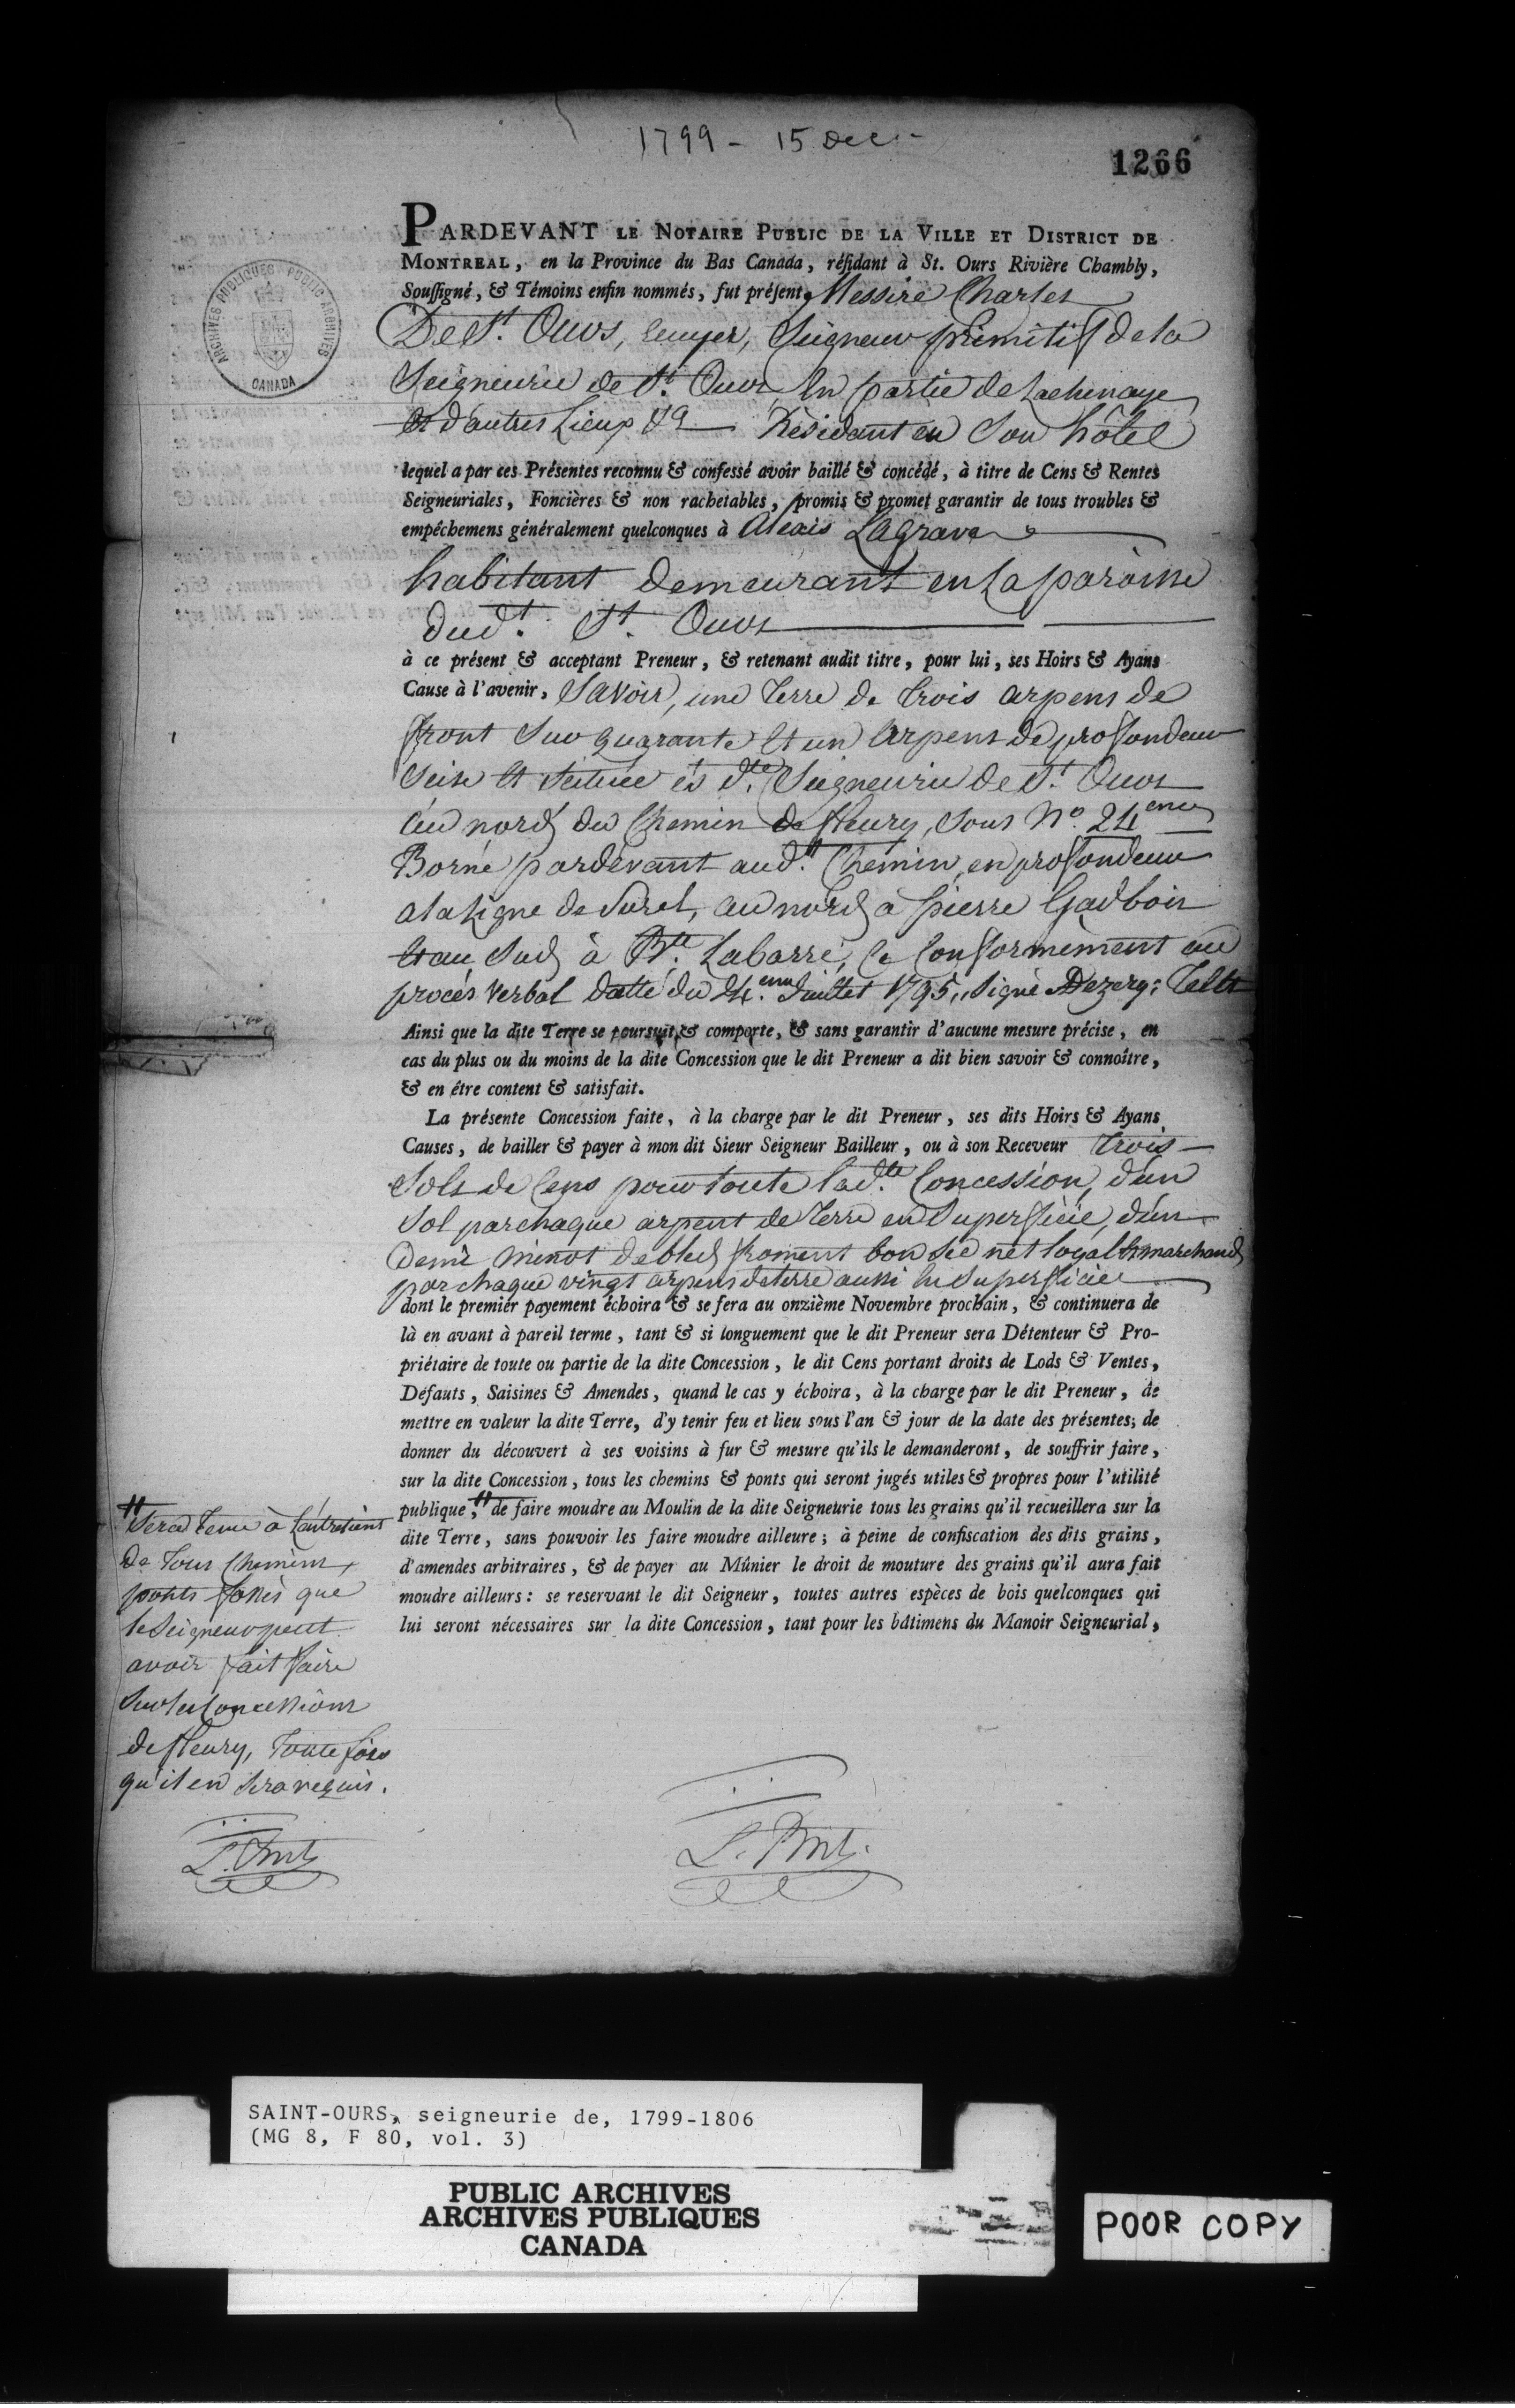 1799 - 15 Dec -
1266
ARCHIVES PUBLIQUES PUBLIC ARCHIVES
CANADA
PARDEVANT LE NOTAIRE PUBLIC DE LA VILLE ET DISTRICT DE
MONTREAL, en la Province du Bas Canada, résidant à St. Ours Rivière Chambly,
Soussigné, & Témoins enfin nommés, fut présent, Messire Charles
De St. Ours, Ecuyer, Seigneur primitif de la
Seigneurie de St. Ours En partie de Lachenaye
Et d'autres Lieux &a Résidant en Son hôtel
lequel a par ces Présentes reconnu & confessé avoir baillé & concédé, à titre de Cens & Rentes
Seigneuriales, Foncières & non rachetables, promis & promet garantir de tous troubles &
empêchemens généralement quelconques à Alexis Lagrave
habitant demeurant en La paroisse
dudt. St. Ours
à ce présent & acceptant Preneur, & retenant audit titre, pour lui, ses Hoirs & Ayans
Cause à l'avenir, Savoir, une Terre de trois arpens de
front Sur quarante Et un Arpens de profondeur
Seise Et Scituée és dte. Seigneurie de St. Ours
Au nord du Chemin de fleury, Sous No. 24eme
Borné pardevant audt. Chemin, en profondeur
a la Ligne de Surel, au nord à pierre Gadbois
Et au Sud à Bte. Labarre, Ce Conformément au
procés Verbal datté du 24.eme Juillet 1795,, Signé Dezery:
Ainsi que la dite Terre se poursuit & comporte, & sans garantir d'aucune mesure précise, en
cas du plus ou du moins de la dite Concession que le dit Preneur a dit bien savoir & connoître,
& en être content & satisfait.
La présente Concession faite, à la charge par le dit Preneur, ses dits Hoirs & Ayans
Causes, de bailler & payer à mon dit Sieur Seigneur Bailleur, ou à son Receveur trois
Sols de Cens pour toute ladte. Concession, d'un
Sol par chaque arpent de Terre en Superficie, d'un
demi minot de bled froment bon Sec net loyal & marchand
par chaque vingt arpens de terre aussi En Superficie
dont le premier payement échoira & se fera au onzième Novembre prochain, & continuera de
là en avant à pareil terme, tant & si longuement que le dit Preneur sera Détenteur & Pro-
priétaire de toute ou partie de la dite Concession, le dit Cens portant droits de Lods & Ventes,
Défauts, Saisines & Amendes, quand le cas y échoira, à la charge par le dit Preneur, de
mettre en valeur la dite Terre, d'y tenir feu et lieu sous l'an & jour de la date des présentes; de
donner du découvert à ses voisins à fur & mesure qu'ils le demanderont, de souffrir faire,
sur la dite Concession, tous les chemins & ponts qui seront jugés utiles & propres pour l'utilité
publique, # de faire moudre au Moulin de la dite Seigneurie tous les grains qu'il recueillera sur la
dite Terre, sans pouvoir les faire moudre ailleure; à peine de confiscation des dits grains,
d'amendes arbitraires, & de payer au Mûnier le droit de mouture des grains qu'il aura fait
moudre ailleurs: se reservant le dit Seigneur, toutes autres espèces de bois quelconques qui
lui seront nécessaires sur la dite Concession, tant pour les bâtimens du Manoir Seigneurial,
# Sera Tenu à L'entretient
De Tous Chemins,
ponts fossés que
le Seigneur peut
avoir fait faire
Sur les Concessions
de fleury, Toute fois
qu'il en Sera requis.
SAINT-OURS, seigneurie de, 1799-1806
(MG 8, F 80, vol. 3)
PUBLIC ARCHIVES
ARCHIVES PUBLIQUES
CANADA
POOR COPY